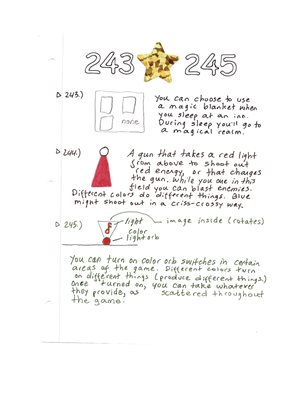 243 245
▷ 243.)
none
You can choose to use
a magic blanket when
you sleep at an inn.
During sleep you'll go to
a magical realm.
▷ 244.)
A gun that takes a red light
from above to shoot out
red energy, or that charges
the gun. While you are in this
field you can blast enemies.
Different colors do different things. Blue
might shoot out in a criss-crossy way.
▷ 245.)
light
image inside (rotates)
color
light orb
You can turn on color orb switches in certain
areas of the game. Different colors turn
on different things (produce different things.)
Once turned on, you can take whatever
they provide, as scattered throughout
the game.